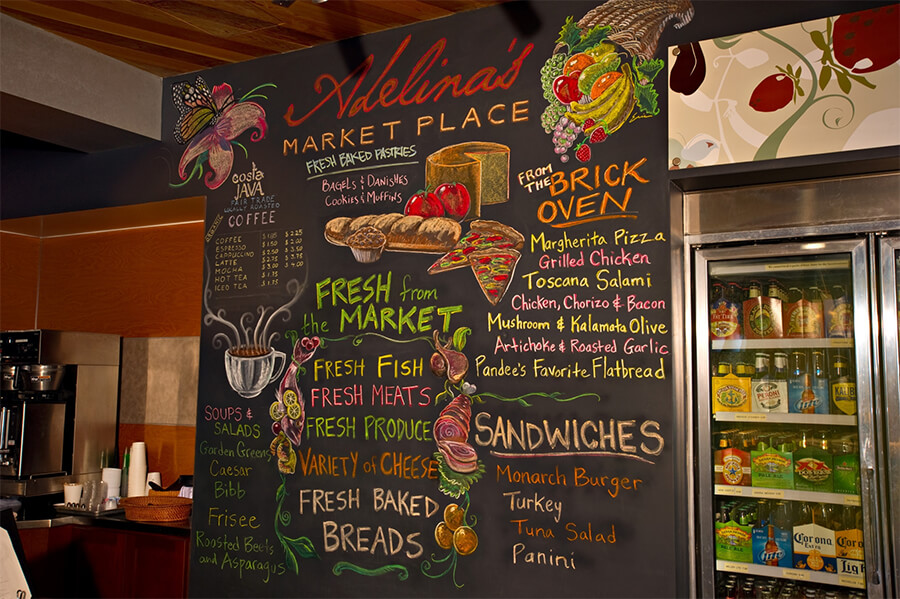 Adelina's
MARKET PLACE
FRESH BAKED PASTRIES
BAGELS & DANISHES
COOKIES & MUFFINS
costa
JAVA
FAIR TRADE
LOCALLY ROASTED
COFFEE
COFFEE
ESPRESSO
CAPPUCCINO
LATTE
MOCHA
HOT TEA
ICED TEA
FROM THE BRICK
OVEN
Margherita Pizza
Grilled Chicken
Toscana Salami
Chicken, Chorizo & Bacon
Mushroom & Kalamata Olive
Artichoke & Roasted Garlic
Pandee's Favorite Flatbread
FRESH from
the MARKET
FRESH FISH
FRESH MEATS
FRESH PRODUCE
VARIETY of CHEESE
FRESH BAKED
BREADS
SOUPS &
SALADS
Garden Greens
Caesar
Bibb
Frisee
Roasted Beets
and Asparagus
SANDWICHES
Monarch Burger
Turkey
Tuna Salad
Panini
Corona
Corona
Light